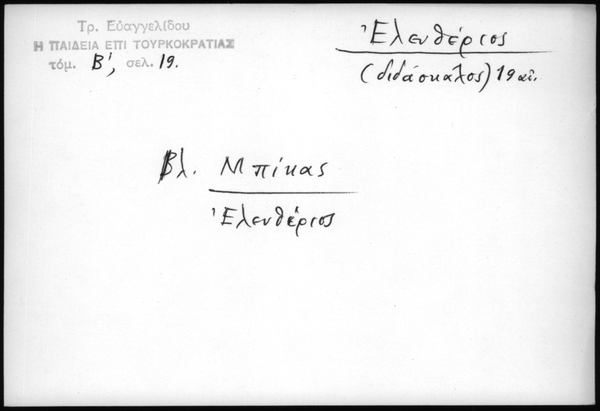 Τρ. Εὐαγγελίδου
Η ΠΑΙΔΕΙΑ ΕΠΙ ΤΟΥΡΚΟΚΡΑΤΙΑΣ
τόμ. Β', σελ. 19.
Ἐλευθέριος
(διδάσκαλος) 19 αἰ.
Βλ. Μπίκας
Ἐλευθέριος